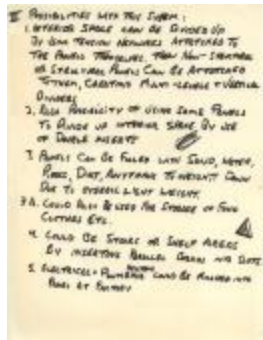 II POSSIBILITIES WITH THIS SYSTEM:
1. INTERIOR SPACE CAN BE DIVIDED UP
BY USING TENSION NETWORKS ATTACHED TO
THE PANELS THEMSELVES. THEN NON-STRUCTURAL
OR STRUCTURAL PANELS CAN BE ATTACHED
TO THEM, CREATING MULTI-LEVELS + VERTICAL
DIVIDERS
2. ALSO POSSIBILITY OF USING SAME PANELS
TO DIVIDE UP INTERIOR SPACE BY USE
OF DOUBLE INSERTS
3. PANELS CAN BE FILLED WITH SAND, WATER,
ROCKS, DIRT, ANYTHING TO WEIGHT DOWN
DUE TO OVERALL LIGHT WEIGHT.
3A. COULD ALSO BE USED FOR STORAGE OF FOOD
CLOTHES ETC.
4. COULD BE STAIRS OR SHELF AREAS
BY INSERTING PARALLEL BOARDS INTO SLOTS
5. ELECTRICAL + PLUMBING COULD BE MOLDED INTO
PANEL AT FACTORY